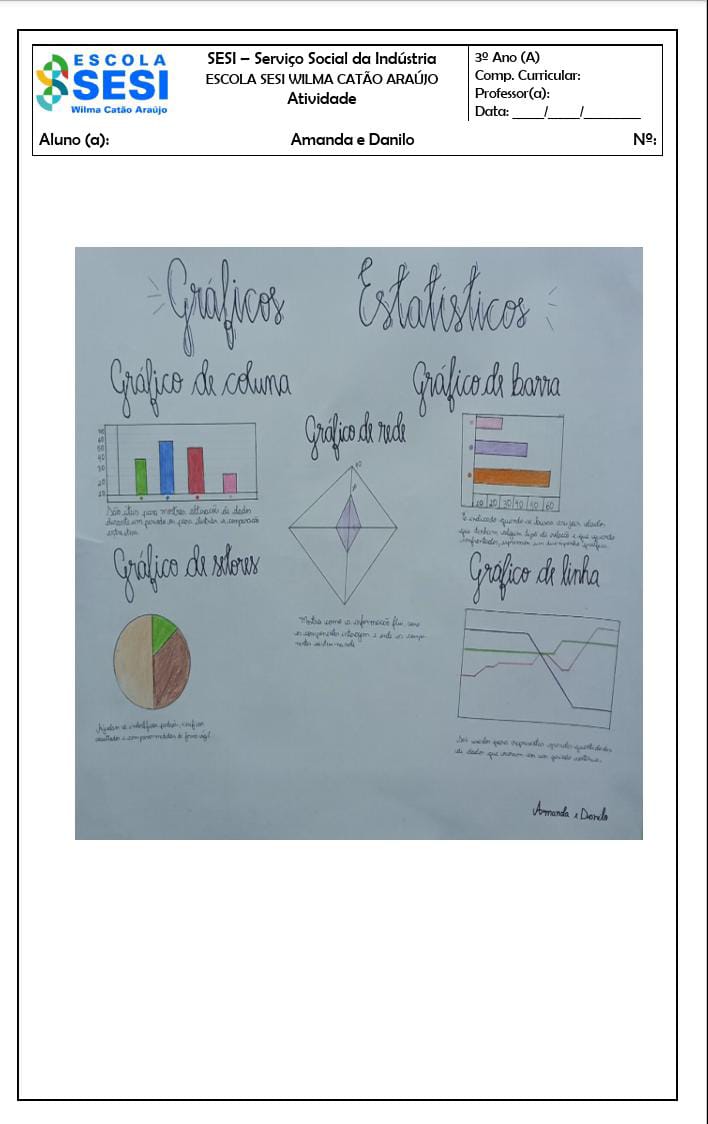 ESCOLA
SESI
Wilma Catão Araújo
SESI – Serviço Social da Indústria
ESCOLA SESI WILMA CATÃO ARAÚJO
Atividade
3º Ano (A)
Comp. Curricular:
Professor(a):
Data: ____/____/_______
Aluno (a): Amanda e Danilo Nº:
Gráficos Estatísticos
Gráfico de coluna
São úteis para mostrar de dados
durante um período ou para ilustrar a comparação
entre itens.
Gráfico de rede
Mostra como a informação flui, como
os componentes interagem e onde os compo-
nentes
Gráfico de barra
10 20 30 40 50 60
É indicado quando se busca cruzar dados
que tenham algum tipo de relação e que quando
confrontados, um desempenho
Gráfico de setores
Ajudam a identificar padrões, verificar
resultados e comparar medidas de forma ágil.
Gráfico de linha
São usados para representar grandes quantidades
de dados que em um período contínuo.
Amanda e Danilo